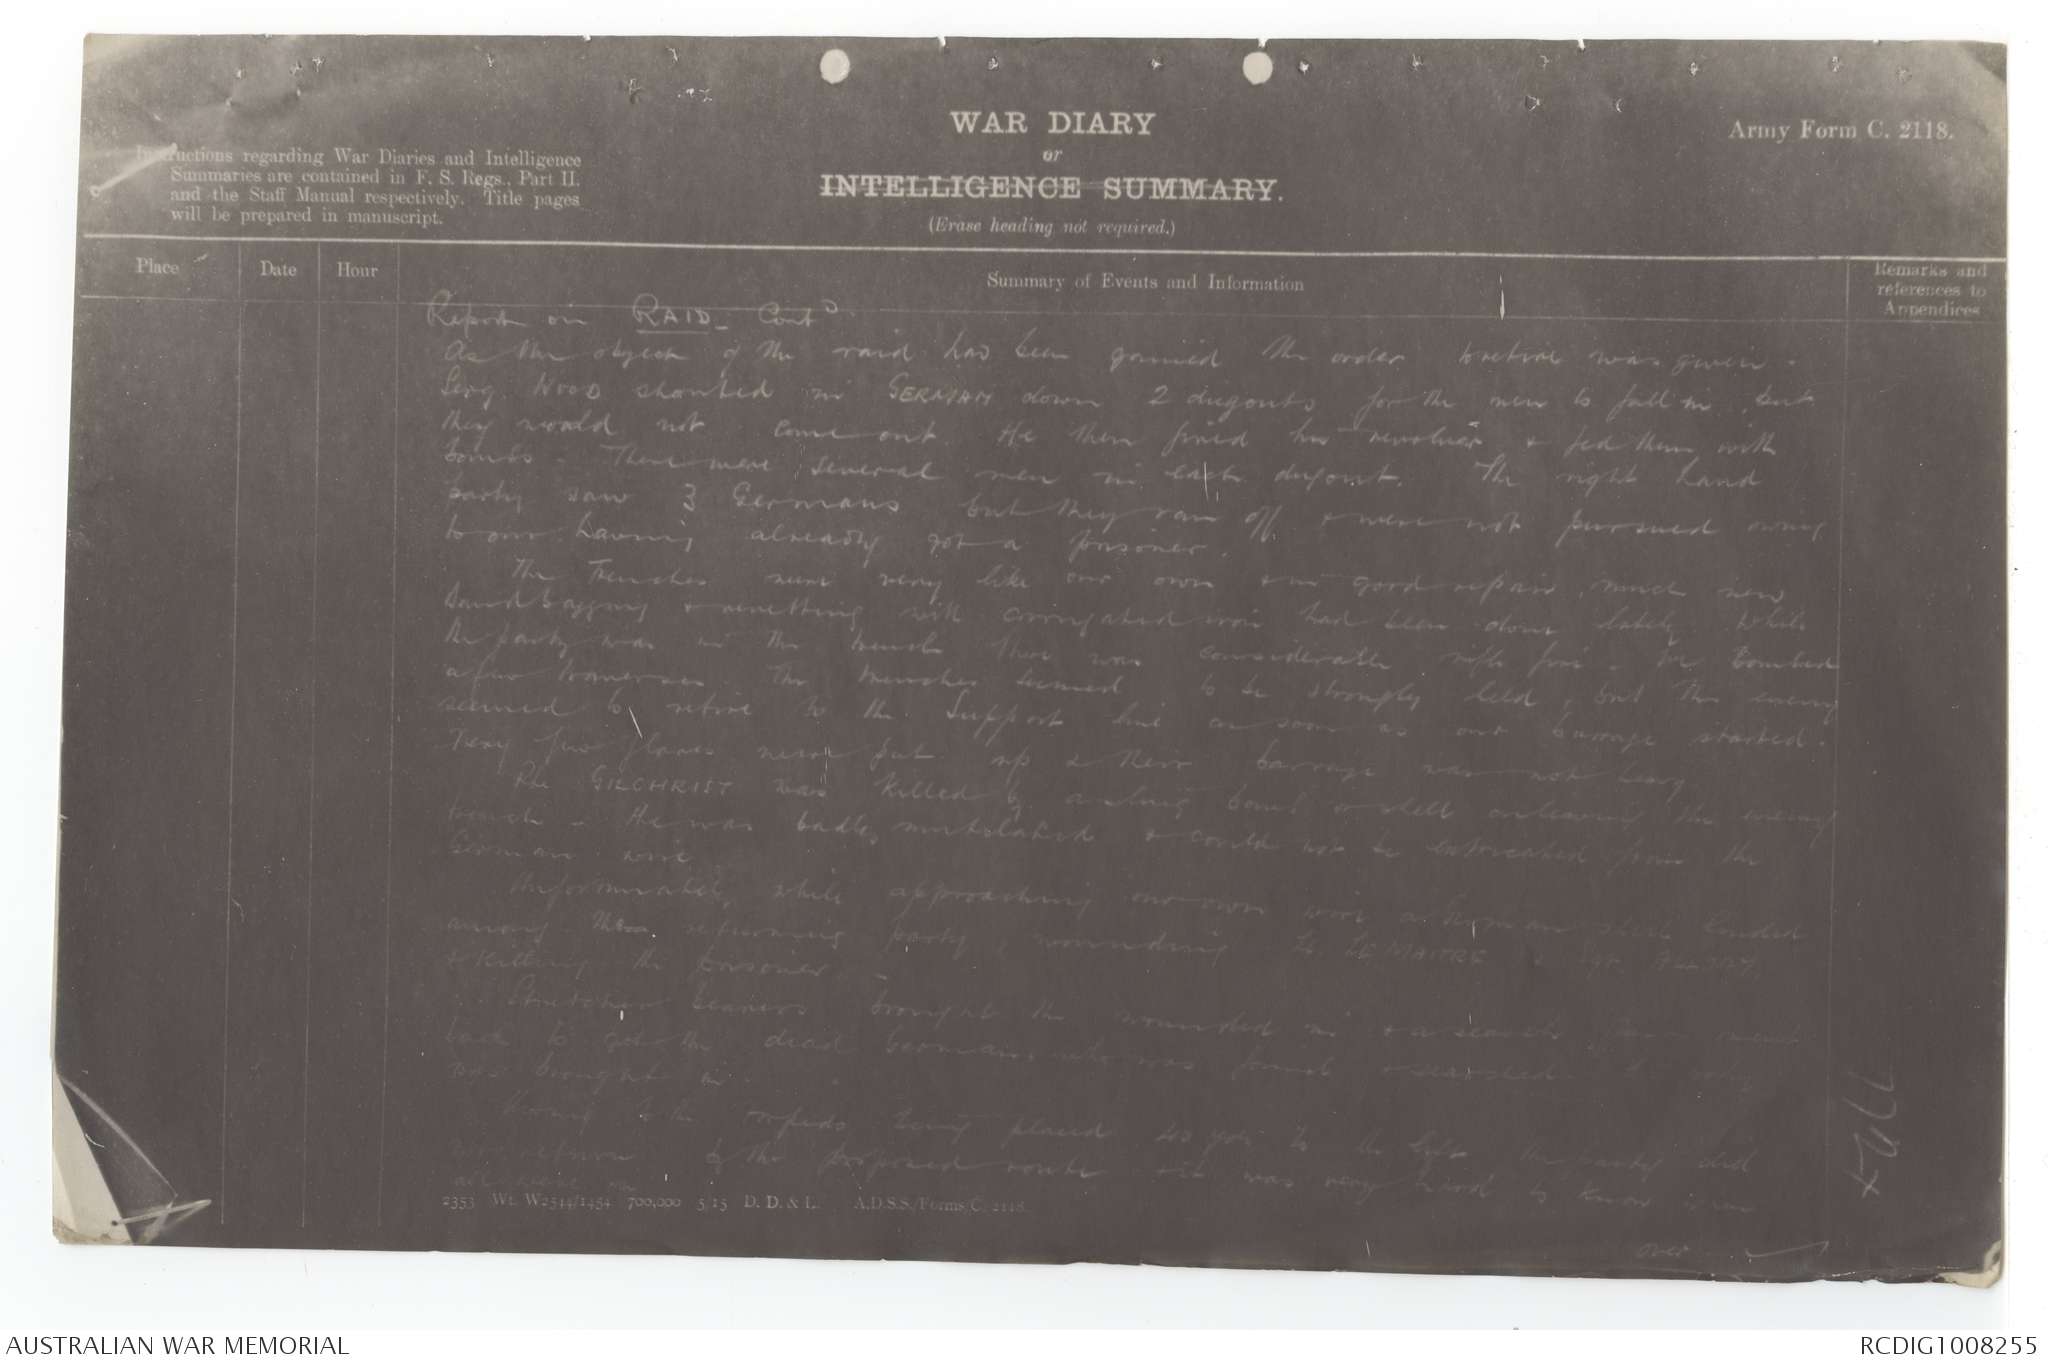 WAR DIARY
or
INTELLIGENCE SUMMARY.
(Erase heading not required.)
Army Form C. 2118.
Instructions regarding War Diaries and Intelligence
Summaries are contained in F. S. Regs., Part II.
and the Staff Manual respectively. Title pages
will be prepared in manuscript.
Place
Date
Hour
Summary of Events and Information
Remarks and
references to
Appendices
Report on RAID - Contd.
As the object of the raid had been gained the order to retire was given.
Serg. WOOD shouted in GERMAN down 2 dugouts for the men to fall in, but
they would not come out. He then fired his revolver & fed them with
bombs. There were several men in each dugout. The right hand
party saw 3 Germans but they ran off & were not pursued owing
to our having already got a prisoner.
The Trenches were very like our own & in good repair, much new
sandbagging & revetting with corrugated iron had been done lately. While
the party was in the trench there was considerable rifle fire - We bombed
a few traverses. The trenches seemed to be strongly held, but the enemy
seemed to retire to the Support line as soon as our barrage started.
Very few flares were put up & their barrage was not heavy
Pte GILCHRIST was killed by a bomb or shell on leaving the enemy
trench - He was badly mutilated & could not be extricated from the
German wire
Unfortunately, while approaching our own wire a German shell landed
among the returning party, wounding Lt. LE MAITRE & Sgt.
& killing the prisoner.
Stretcher bearers brought the wounded in & a search went
back to get the dead German, who was found &
was brought in.
Owing to the torpedo being placed yds to the left the party did
not return by the proposed route & it was very hard to know when
all were in
2353 Wt. W2544/1454 700,000 5/15 D. D. & L. A.D.S.S./Forms/C. 2118.
over
AUSTRALIAN WAR MEMORIAL
RCDIG1008255